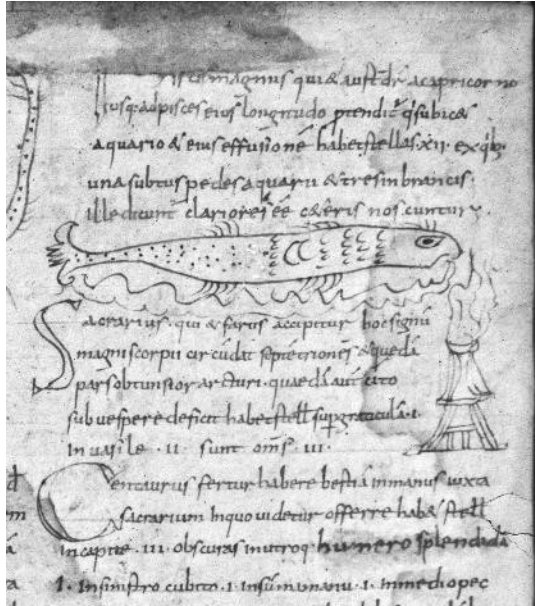 magnus qui & auster dr acapricorno
usq; adpisces eius longitudo ptendit q subica&
aquario & eius effusione habet stellas xii ex qb;
una subtus pedes aquarii & tres in brancis
ille dicunt clariores ee c&eris noscuntur
Sacrarius qui & farus accipitur hoc signu
magni scorpii circudat septetriones & queda
pars obtunsior arcturi quaeda aut cito
sub vespere deficit habet stell sup graticula i
In vasile ii sunt oms iii
Centaurus fertur habere bestia inmanus iuxta
sacrarium Inquo videtur offerre hab& stell
incapite iii obscuras inutroq humero splendida
i Insinistro cubito i insumanu i Inmediopec